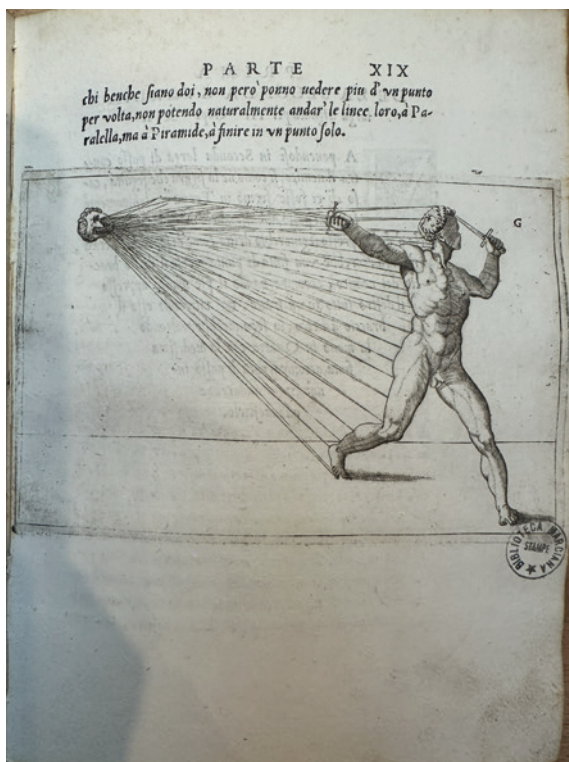 PARTE XIX
chi benche siano doi, non però ponno uedere piu d'vn punto
per volta, non potendo naturalmente andar' le linee loro, à Pa-
ralella, ma à Piramide, à finire in vn punto solo.
G
BIBLIOTECA MARCIANA
STAMPE